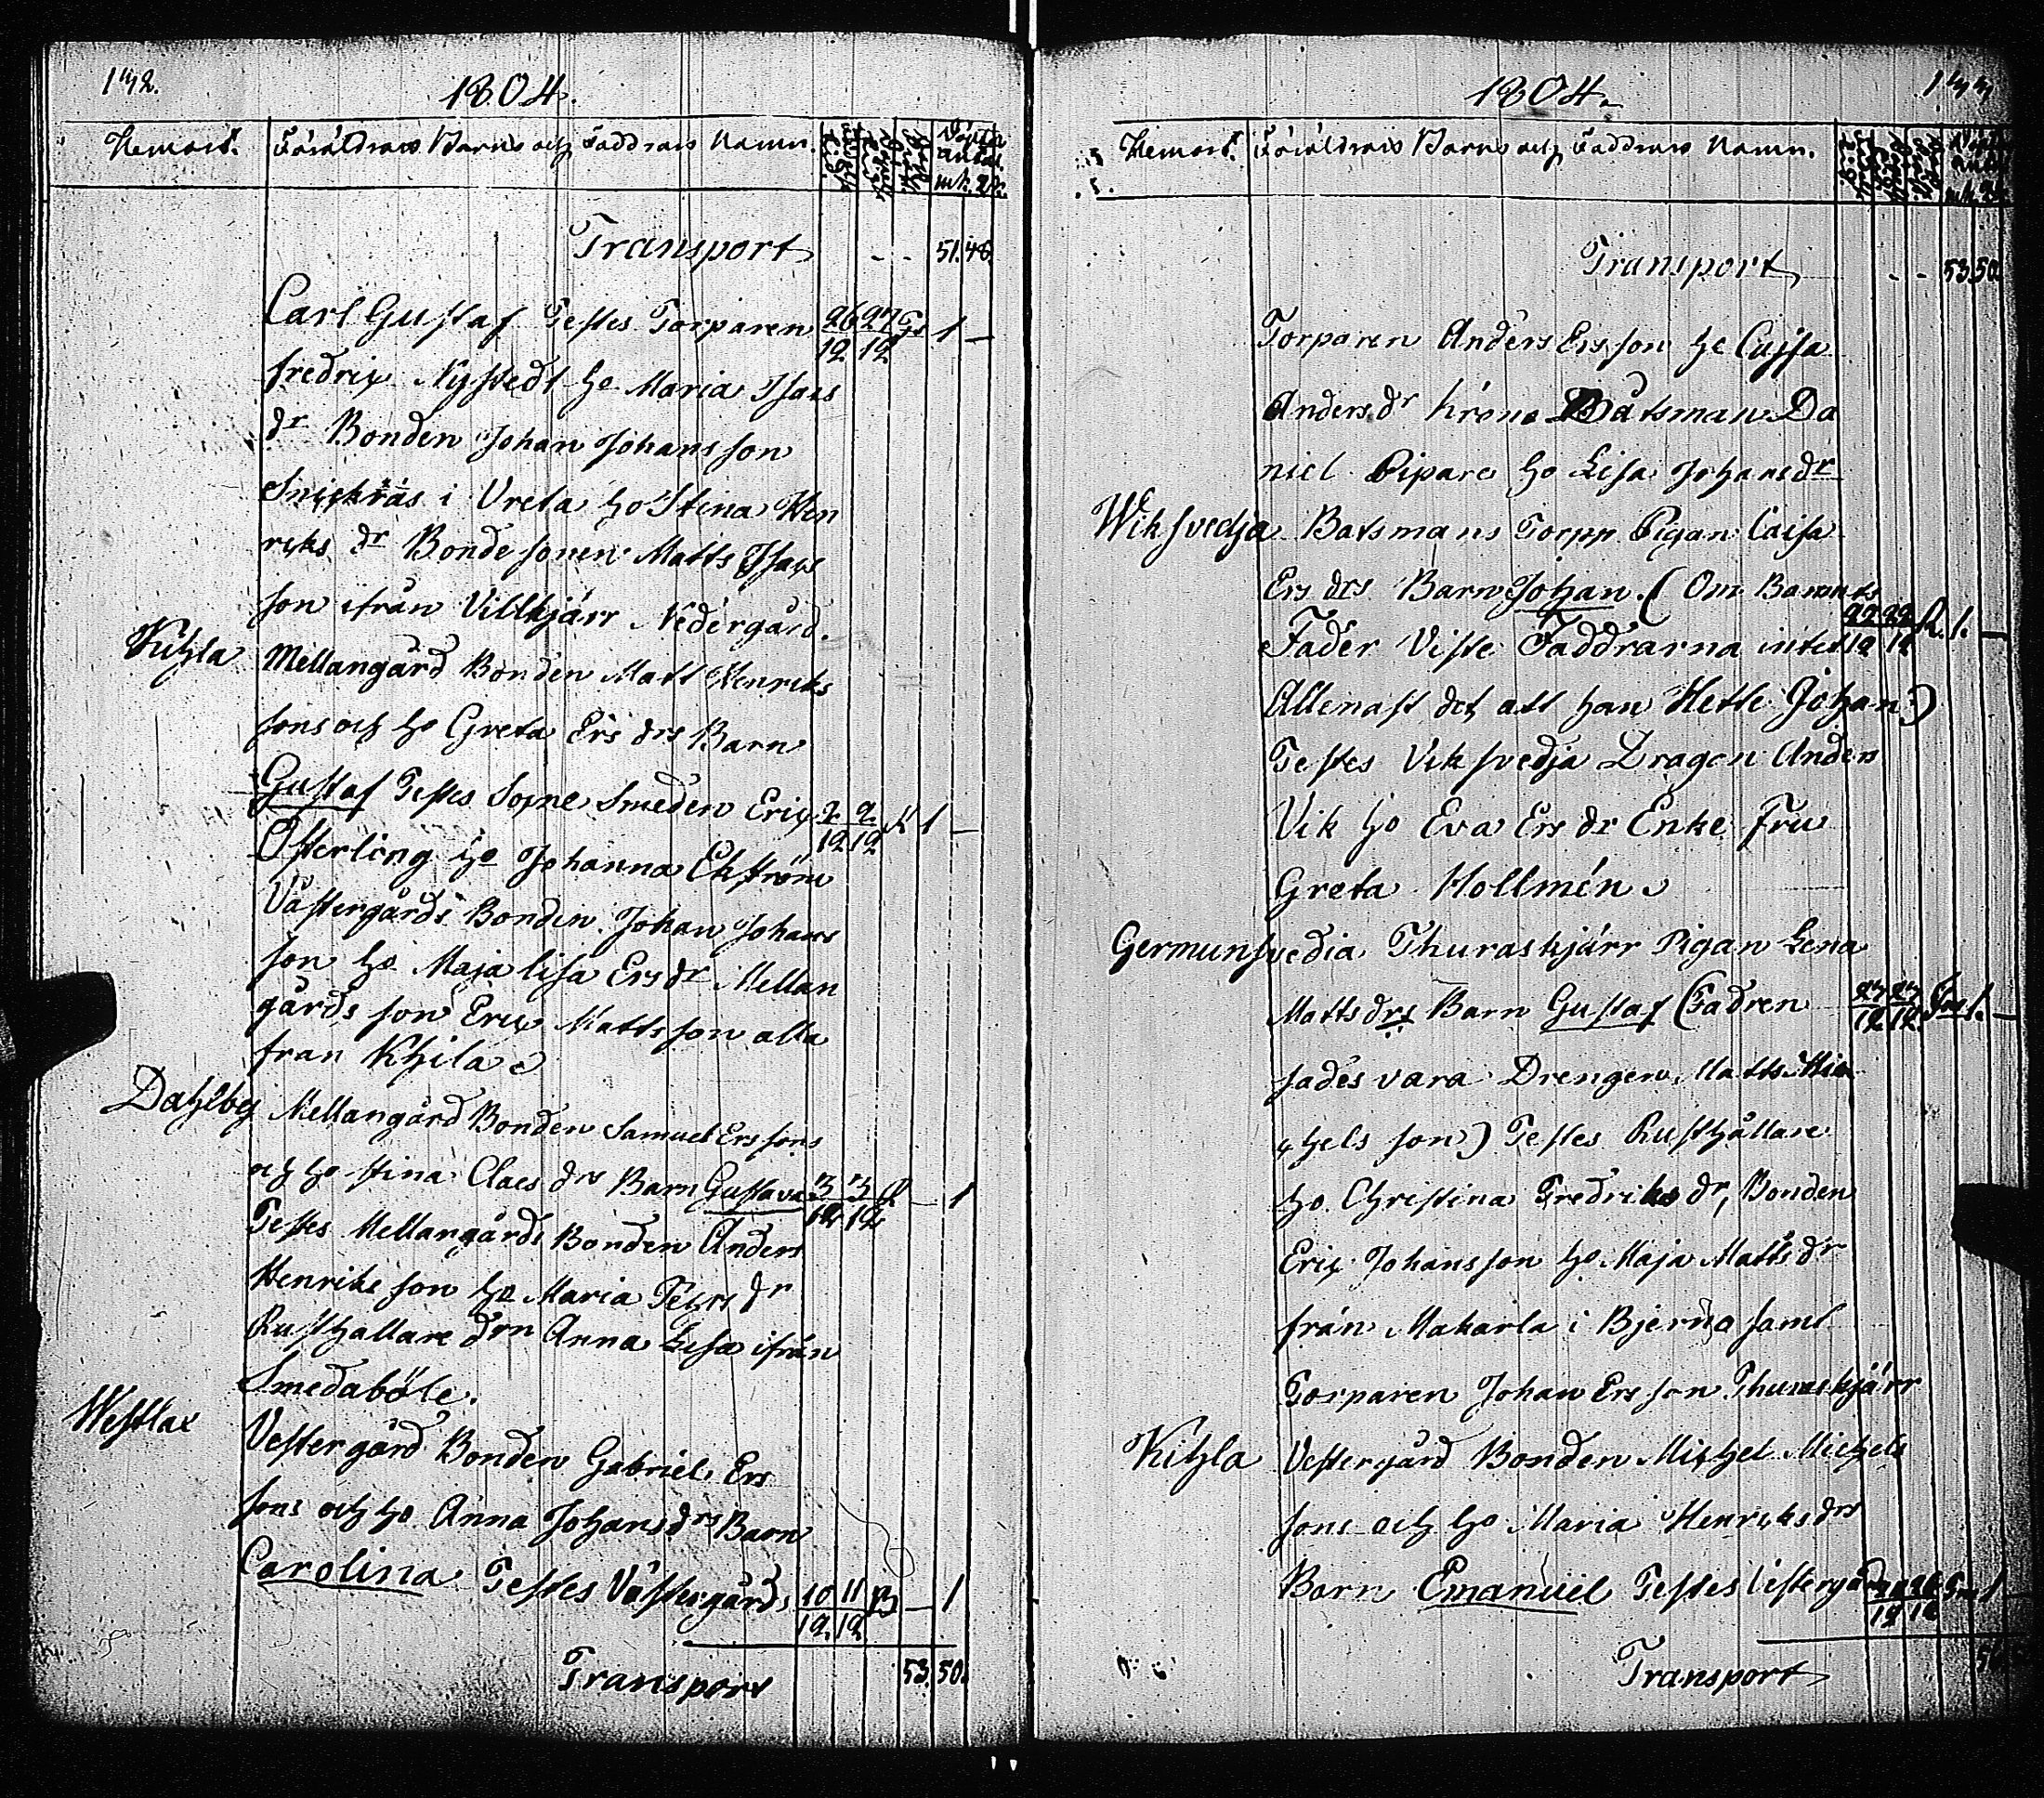 142.
1804.
Hemort. Föräldrars Barns och Faddrars Namn.
Transport - - 51. 48.
Carl Gustaf Testes Torparen 26/12 27/12 1 —
Fredric Nystedt ho Maria Isacs
dr Bonden Johan Johansson
Snickras i Vreta ho Stina Hen
ricks dr Bondesonen Matts Isacs
son ifrån Villkjärr Nedergård.
Kihla Mellangård Bonden Matt Henriks
sons och ho Greta Ers drs Barn
Gustaf Testes Sokne Smeden Eric 2/12 2/12 1 —
Österling ho Johanna Ekström
Västergårds Bonden Johan Johans
son ho Maja Lisa Ers dr Mellan
gårds son Eric Mattsson alla
fran Khila
Dahlby Mellangård Bonden Samuel Erssons
och ho Stina Claes drs Barn Gustava 3/12 3/12 — 1
Testes Mellangårds Bonden Anders
Henriksson ho Maria dr
Rusthållare drn Anna Lisa ifrån
Smedaböle.
Westlax Vestergård Bonden Gabriel Ers
sons och ho Anna Johans drs Barn
Carolina Testes Västergårds 10/12 11/12 — 1
Transport 53. 50.
1804.
Hemort. Föräldrars Barns och Faddrars Namn.
Transport - - 53. 50
Torparen Anders Ersson ho Cajsa
Anders dr krono Båtsman Da
niel Pipare ho Lisa Johans dr
Wiksvedja Batsmans Torpp Pigan Caisa
Ers drs Barn Johan. (Om Barnets
Fader Viste Faddrarna intet 22/12 22/12 1. —
Allenast det att han Hette Johan)
Testes Viksvedja Dragon Anders
Vik ho Eva Ers dr Enke Fru
Greta Hollmén
Germunsvedia Thuraskjärr Pigan Lena
Matts drs Barn Gustaf (Fadren 23/12 23/12 1. —
sades vara Drengen Matts Mi
chels son) Testes Rusthållare
ho Christina Fredriks dr, Bonden
Eric Johansson ho Maja Matts dr
från Makarla i Bjerno samt
Torparen Johan Ersson Thuraskjärr
Kihla Vestergård Bonden Michel Michels
sons och ho Maria Henricks drs
Barn Emanuel Testes 1
Transport